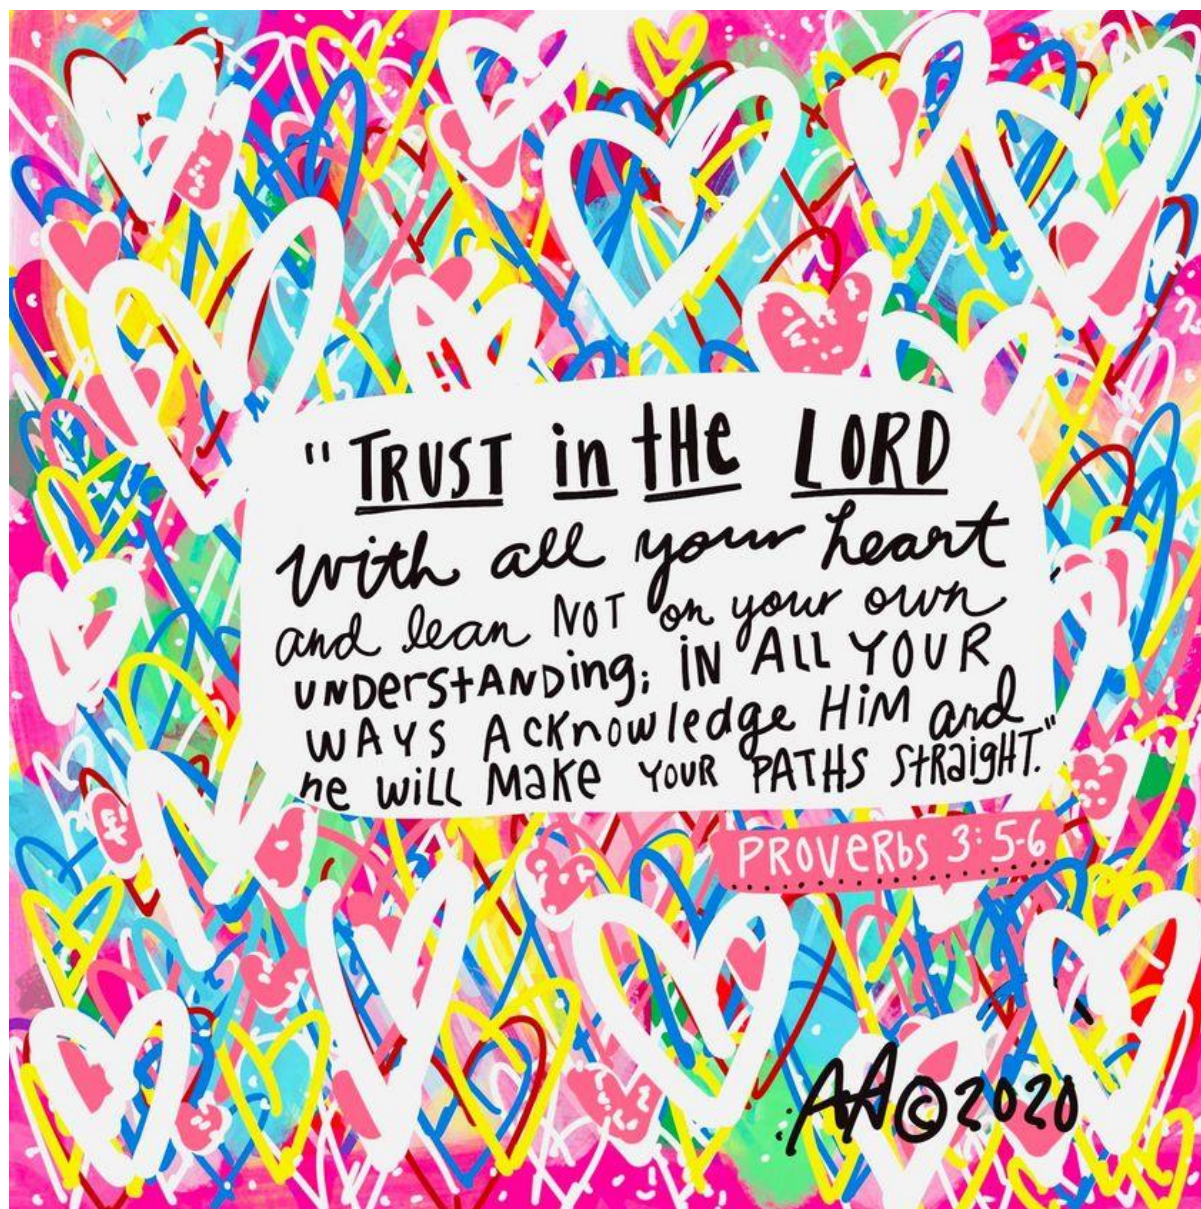 "TRUST in tHe LORD
with all your heart
and lean NOT on your own
UNDerstANDing; iN ALL YOUR
WAYS ACKnowledge HiM and
he WiLL MaKe YOUR PATHS StRaigHT."
PROVeRbs 3:5-6
AA©2020